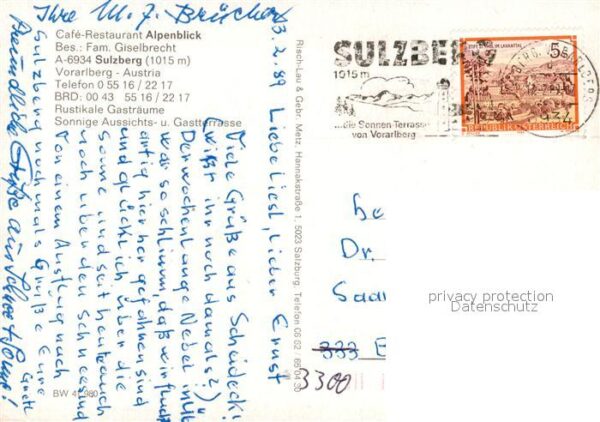 Ihre M. J. Brücher
Café-Restaurant Alpenblick
Bes.: Fam. Giselbrecht
A-6934 Sulzberg (1015 m)
Vorarlberg - Austria
Telefon 0 55 16 / 22 17
BRD: 00 43  55 16 / 22 17
Rustikale Gasträume
Sonnige Aussichts- u. Gastterrasse
BW 41 980
Risch-Lau & Gebr. Metz, Hannakstraße 1, 5023 Salzburg, Telefon 06 62
3.2.89
Liebe Liesl, Lieber Ernst
Viele Grüße aus Scheidegg
(wißt ihr noch damals?)
Der wochenlange Nebel
war so schlimm, daß wir
hierher gefahren sind
und glücklich über die
Sonne und seit heute auch
noch über den Schnee sind
Von einem Ausflug nach
Sulzberg nochmals Grüße Eure
Grete
Freundliche Grüße aus Schnee + Sonne!
SULZBERG
1015 m
die Sonnen-Terrasse
von Vorarlberg
STIFT ST. PAUL IM LAVANTTAL
5S
REPUBLIK ÖSTERREICH
6934
Dr.
Saar
333
3300
privacy protection
Datenschutz